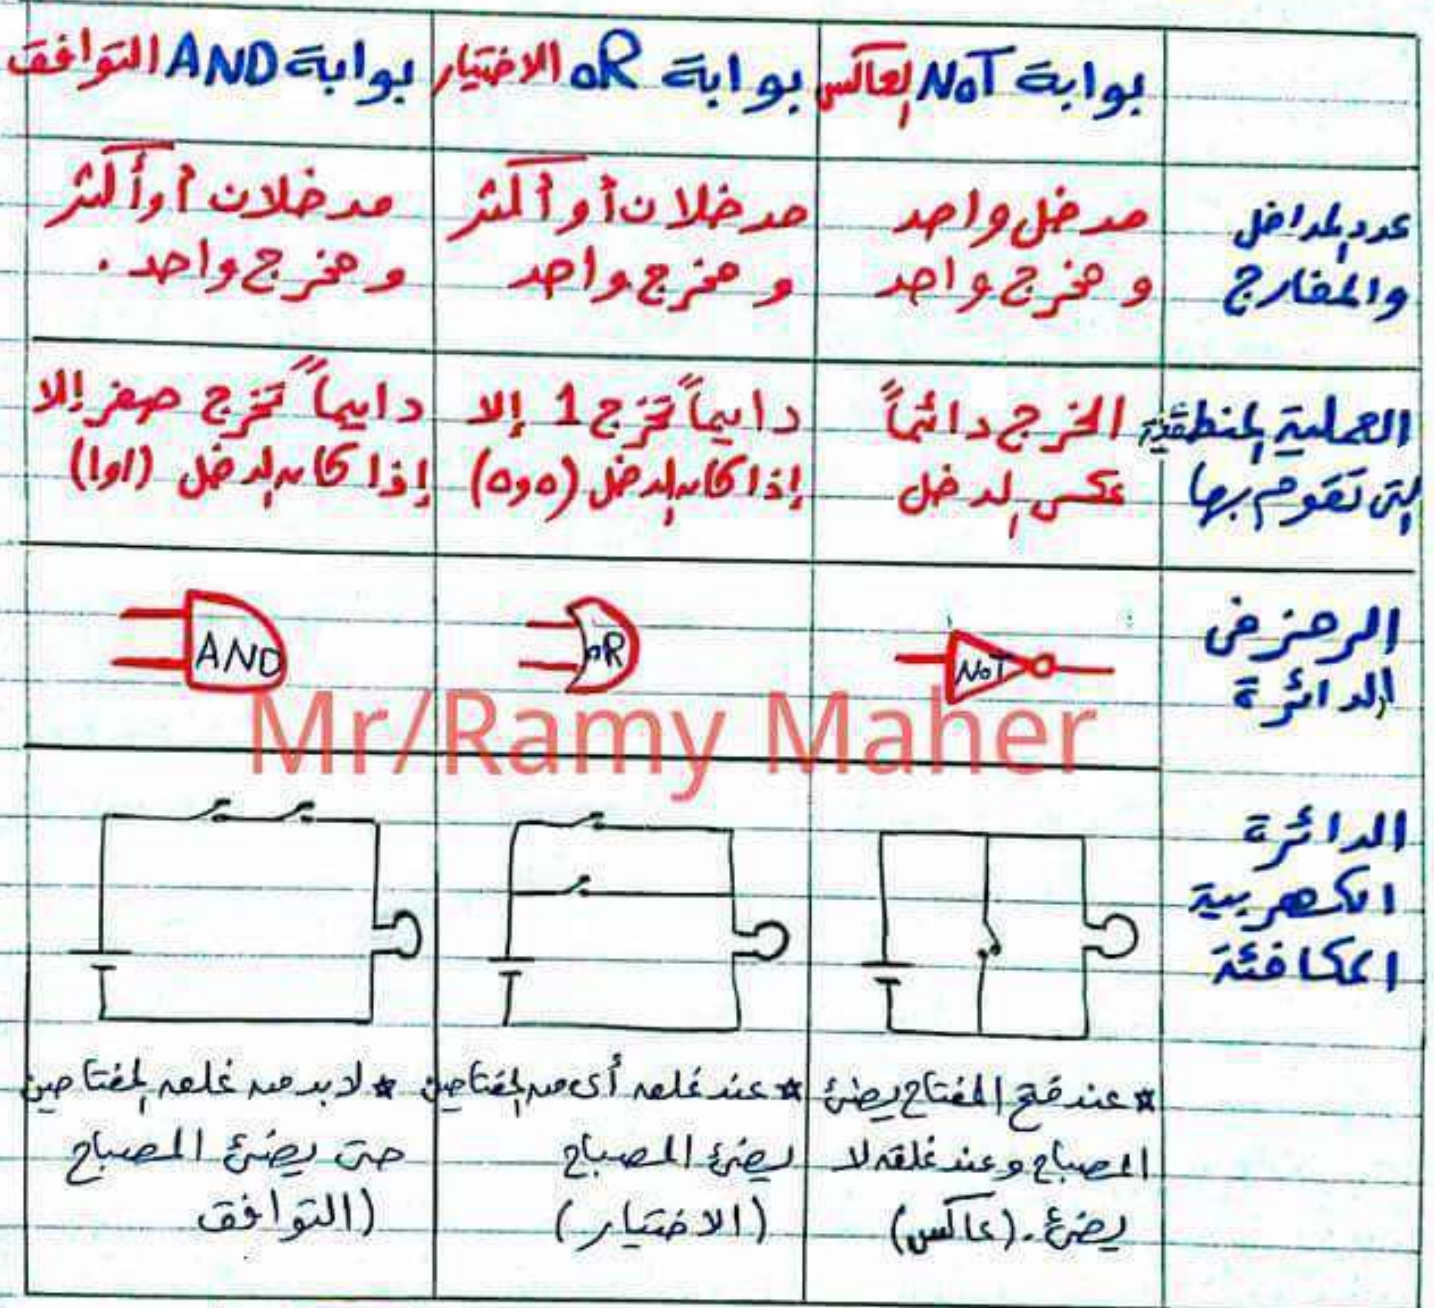 بوابة NOT العاكس
بوابة OR الاختيار
بوابة AND التوافق
عدد المداخل
والمخارج
مدخل واحد
و مخرج واحد
مدخلان أو أكثر
و مخرج واحد
مدخلان أو أكثر
و مخرج واحد .
العملية المنطقية
التى تقوم بها
الخرج دائماً
عكس الدخل
دايماً تخرج 1 إلا
إذا كان الدخل (0و0)
دايماً تخرج صفر إلا
إذا كان الدخل (1و1)
الرمز فى
الدائرة
NOT
OR
AND
Mr/Ramy Maher
الدائرة
الكهربية
المكافئة
* عند فتح المفتاح يضئ
المصباح وعند غلقه لا
يضئ . (عاكس)
* عند غلق أى من المفتاحين
يضئ المصباح
(الاختيار)
* لابد من غلق المفتاحين
حتى يضئ المصباح
(التوافق